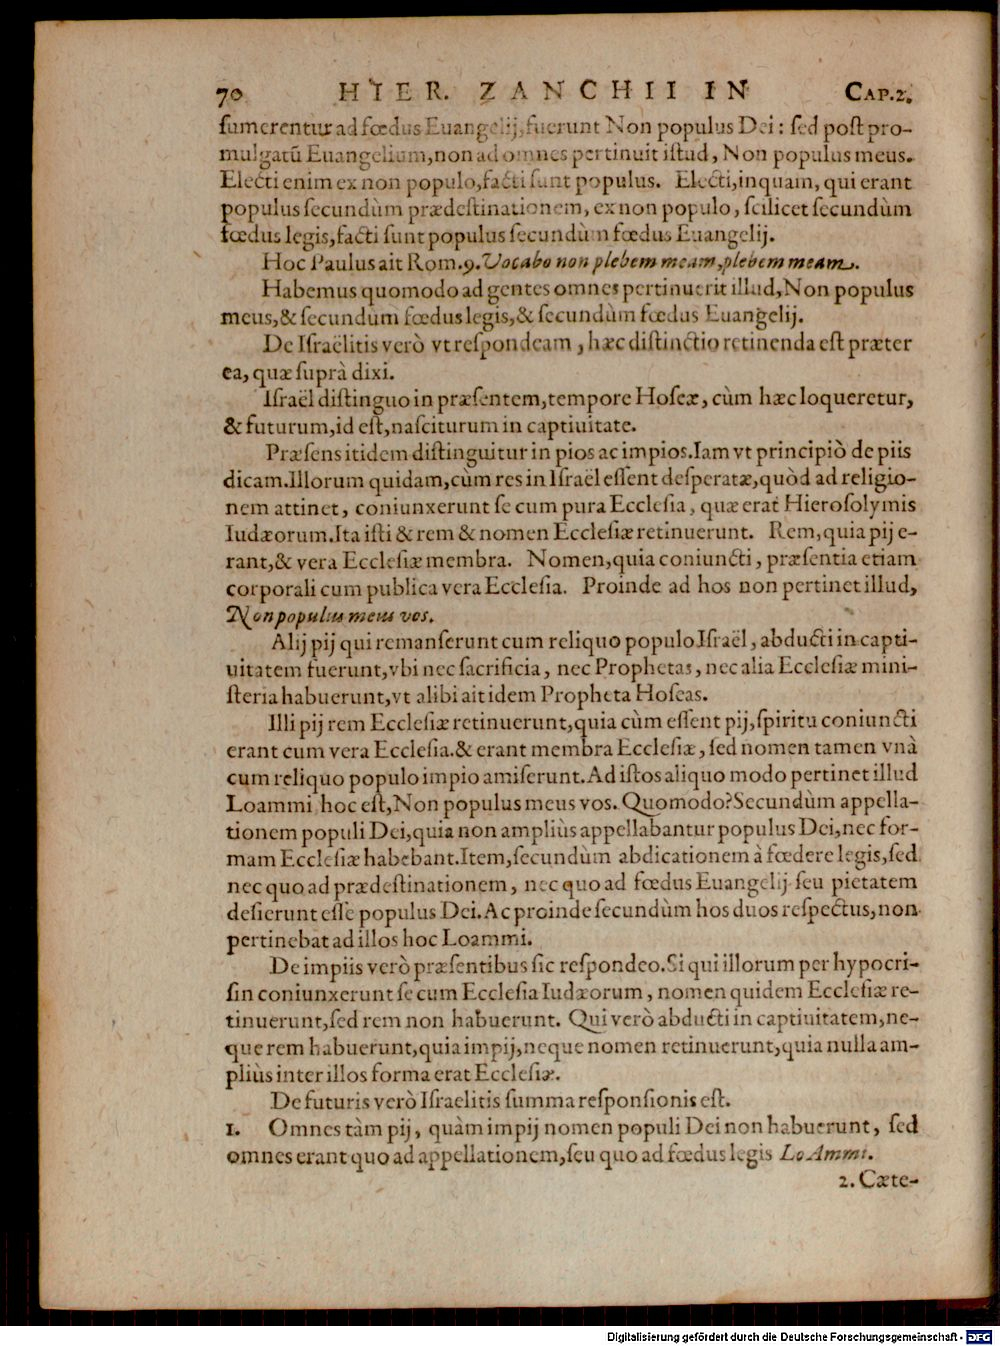 70 HIER. ZANCHII IN CAP.2.
ſumerentur ad fœdus Euangelij, fuerunt Non populus Dei: ſed poſt pro-
mulgatū Euangelium, non ad omnes pertinuit iſtud, Non populus meus.
Electi enim ex non populo, facti ſunt populus. Electi, inquam, qui erant
populus ſecundùm prædeſtinationem, ex non populo, ſcilicet ſecundùm
fœdus legis, facti ſunt populus ſecundùm fœdus Euangelij.
Hoc Paulus ait Rom. 9. Vocabo non plebem meam, plebem meam.
Habemus quomodo ad gentes omnes pertinuerit illud, Non populus
meus, & ſecundum fœdus legis, & ſecundùm fœdus Euangelij.
De Iſraëlitis verò vt reſpondeam, hæc diſtinctio retinenda eſt præter
ea, quæ ſuprà dixi.
Iſraël diſtinguo in præſentem, tempore Hoſeæ, cùm hæc loqueretur,
& futurum, id eſt, naſciturum in captiuitate.
Præſens itidem diſtinguitur in pios ac impios. Iam vt principiò de piis
dicam. Illorum quidam, cùm res in Iſraël eſſent deſperatæ, quòd ad religio-
nem attinet, coniunxerunt ſe cum pura Eccleſia, quæ erat Hieroſolymis
Iudæorum. Ita iſti & rem & nomen Eccleſiæ retinuerunt. Rem, quia pij e-
rant, & vera Eccleſiæ membra. Nomen, quia coniuncti, præſentia etiam
corporali cum publica vera Eccleſia. Proinde ad hos non pertinet illud,
Non populus meus vos.
Alij pij qui remanſerunt cum reliquo populo Iſraël, abducti in capti-
uitatem fuerunt, vbi nec ſacrificia, nec Prophetas, nec alia Eccleſiæ mini-
ſteria habuerunt, vt alibi ait idem Propheta Hoſeas.
Illi pij rem Eccleſiæ retinuerunt, quia cùm eſſent pij, ſpiritu coniuncti
erant cum vera Eccleſia. & erant membra Eccleſiæ, ſed nomen tamen vnà
cum reliquo populo impio amiſerunt. Ad iſtos aliquo modo pertinet illud
Loammi hoc eſt, Non populus meus vos. Quomodo? Secundùm appella-
tionem populi Dei, quia non ampliùs appellabantur populus Dei, nec for-
mam Eccleſiæ habebant. Item, ſecundùm abdicationem à fœdere legis, ſed
nec quo ad prædeſtinationem, nec quo ad fœdus Euangelij ſeu pietatem
deſierunt eſſe populus Dei. Ac proinde ſecundùm hos duos reſpectus, non
pertinebat ad illos hoc Loammi.
De impiis verò præſentibus ſic reſpondeo. Si qui illorum per hypocri-
ſin coniunxerunt ſe cum Eccleſia Iudæorum, nomen quidem Eccleſiæ re-
tinuerunt, ſed rem non habuerunt. Qui verò abducti in captiuitatem, ne-
que rem habuerunt, quia impij, neque nomen retinuerunt, quia nulla am-
pliùs inter illos forma erat Eccleſiæ.
De futuris verò Iſraelitis ſumma reſponſionis eſt.
1. Omnes tàm pij, quàm impij nomen populi Dei non habuerunt, ſed
omnes erant quo ad appellationem, ſeu quo ad fœdus legis Lo Ammi.
2. Cæte-
Digitalisierung gefördert durch die Deutsche Forschungsgemeinschaft - DFG